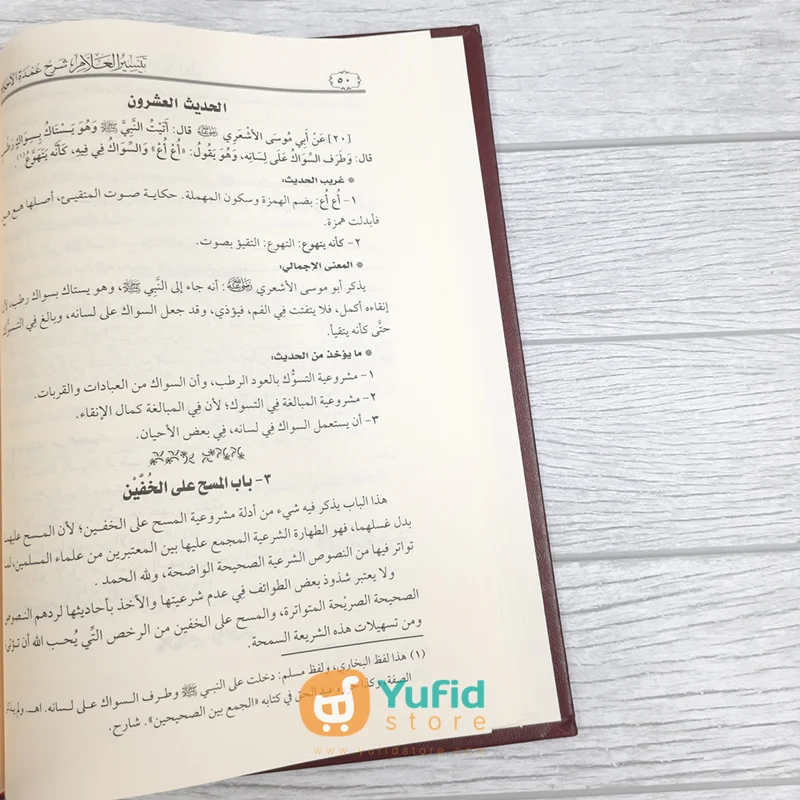 ٥٠
تيسير العلام شرح عمدة
الحديث العشرون
[٢٠] عَنْ أَبِي مُوسَى الأَشْعَرِي رضي الله عنه قَالَ: أَتَيْتُ النَّبِيَّ ﷺ وَهُوَ يَسْتَاكُ بِسِوَاكٍ
قال: وَطَرَف السِّوَاكُ عَلَى لِسَانِه، وَهُوَ يَقُولُ: «أُعْ أُعْ» وَالسِّوَاكُ فِي فِيهِ، كَأَنَّه يَتَهَوَّعُ(١).
* غريب الحديث:
١- أُع أُع: بضم الهمزة وسكون المهملة. حكاية صوت المتقيئ، أصلها هع هع
فأبدلت همزة.
٢- كأنه يتهوع: التهوع: التقيؤ بصوت.
* المعنى الإجمالي:
يذكر أبو موسى الأشعري رضي الله عنه: أنه جاء إلى النَّبِي ﷺ، وهو يستاك بسواك رطب، لأن
إنقاءه أكمل، فلا يتفتت في الفم، فيؤذي، وقد جعل السواك على لسانه، وبالغ فِي
حتَّى كأنه يتقيأ.
* ما يؤخذ من الحديث:
١- مشروعية التسوُّك بالعود الرطب، وأن السواك من العبادات والقربات.
٢- مشروعية المبالغة فِي التسوك؛ لأن فِي المبالغة كمال الإنقاء.
٣- أن يستعمل السواك فِي لسانه، فِي بعض الأحيان.
٣- باب المسح على الخُفَّيْن
هذا الباب يذكر فيه شيء من أدلة مشروعية المسح على الخفين؛ لأن المسح عليهما
بدل غسلهما، فهو الطهارة الشرعية المجمع عليها بين المعتبرين من علماء المسلمين،
تواتر فيها من النصوص الشرعية الصحيحة الواضحة، ولله الحمد .
ولا يعتبر شذوذ بعض الطوائف في عدم شرعيتها والأخذ بأحاديثها لردهم النصوص
الصحيحة الصريْحة المتواترة، والمسح على الخفين من الرخص التِّي يُحب الله أن تؤتى
ومن تسهيلات هذه الشريعة السمحة.
(١) هذا لفظ البخاري، ولفظ مسلم: دخلت على النبي ﷺ وطرف السواك على لسانه. اهـ.
الصفة عبد الحق في كتابه «الجمع بين الصحيحين». شارح.
Yufid
store
www.yufidstore.com